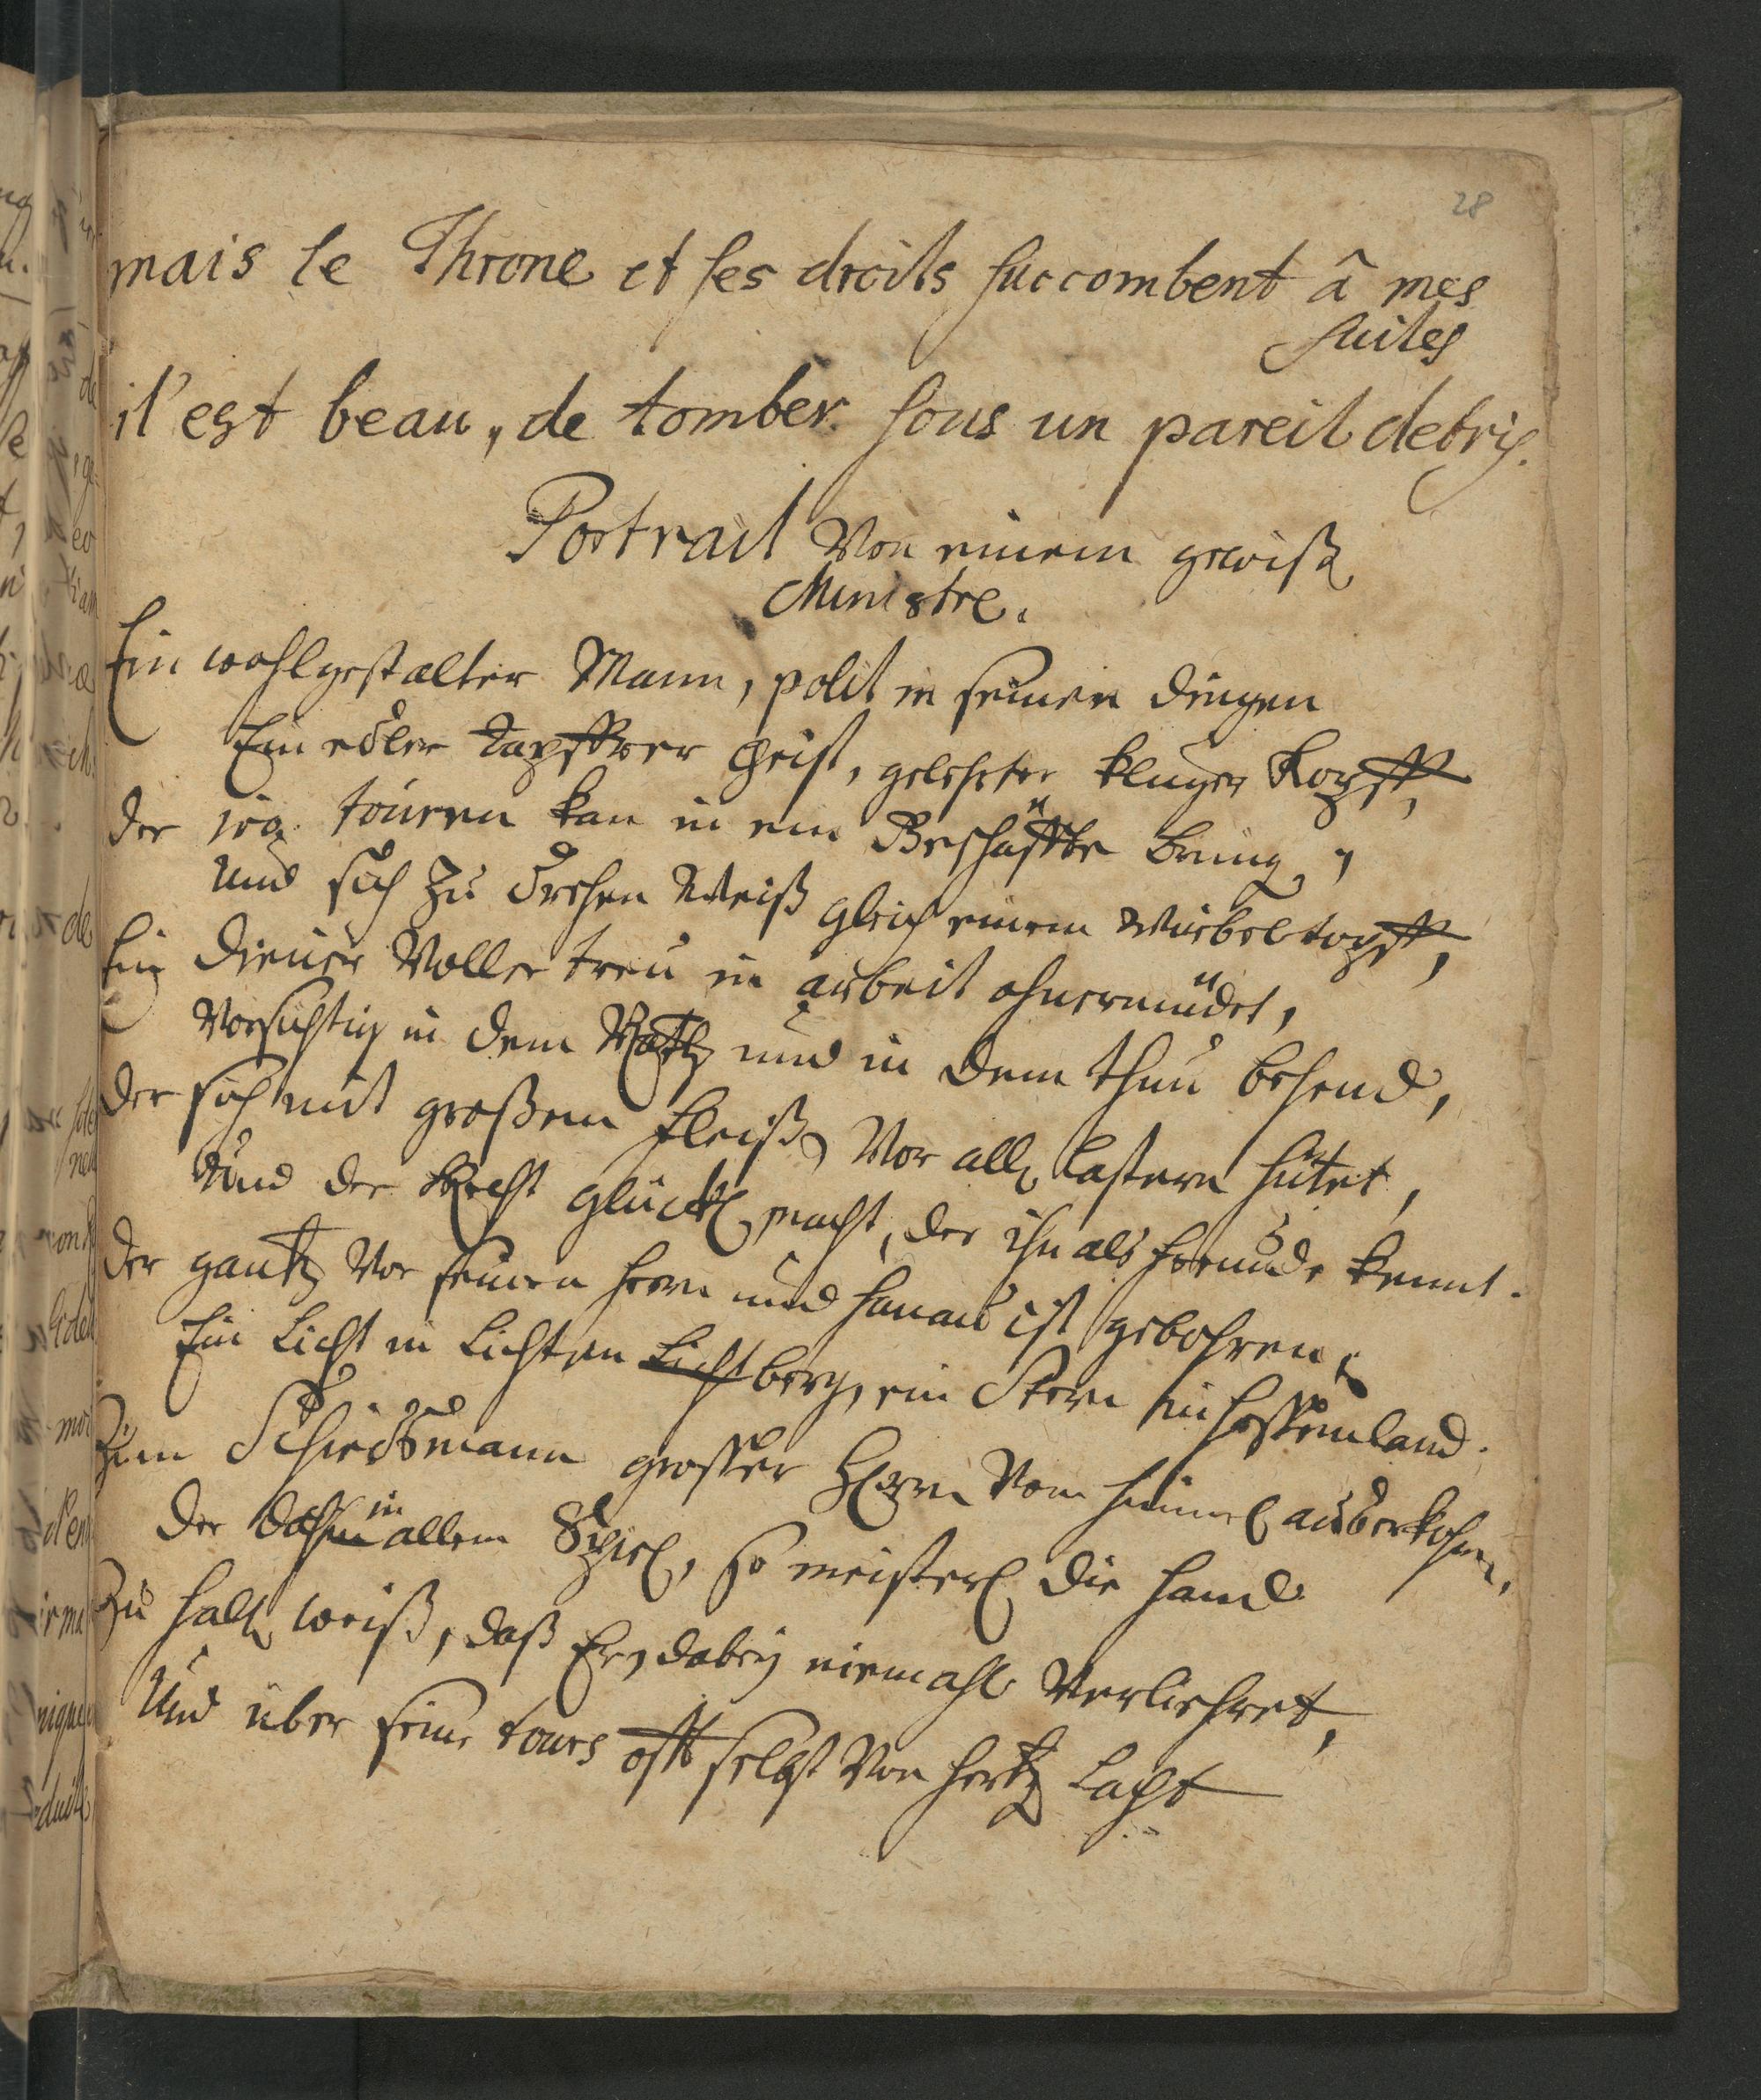 28
mais le Throne et ses droits succombent â mes
suites
il'est beau, de tomber sous un pareil debris.
Portrait Von einem gewiß
Ministre.
Ein wohlgestalter Mann, polit in seinen dingen
Ein edler tapfferer Geist, gelehrter kluger Kopff,
der touren kan in ein Geschäffte bring,
Und sich zu drehen weiß gleich einem Würbeltopff,
Ein diener Voller treu in arbeit ohnermüdet,
Vorsichtig in dem Rath und in dem thun behend,
der sich mit großem Fleiß Vor all lastern hütet,
Und der recht glückl macht, der ihn als freunde kennt.
der gantz Vor seinen herrn und hanau ist gebohren,
Ein Licht in Lichten Lichtberg, ein Stern in hessenland.
Zum Schiedsmann grosser Herrn Vom himmel auserkohrn,
der in allem Spiel, so meisterl die hand
Zu halt weiß, daß Er dabey niemahl Verliehret,
Und über seine tours offt selbst Von hertz lacht